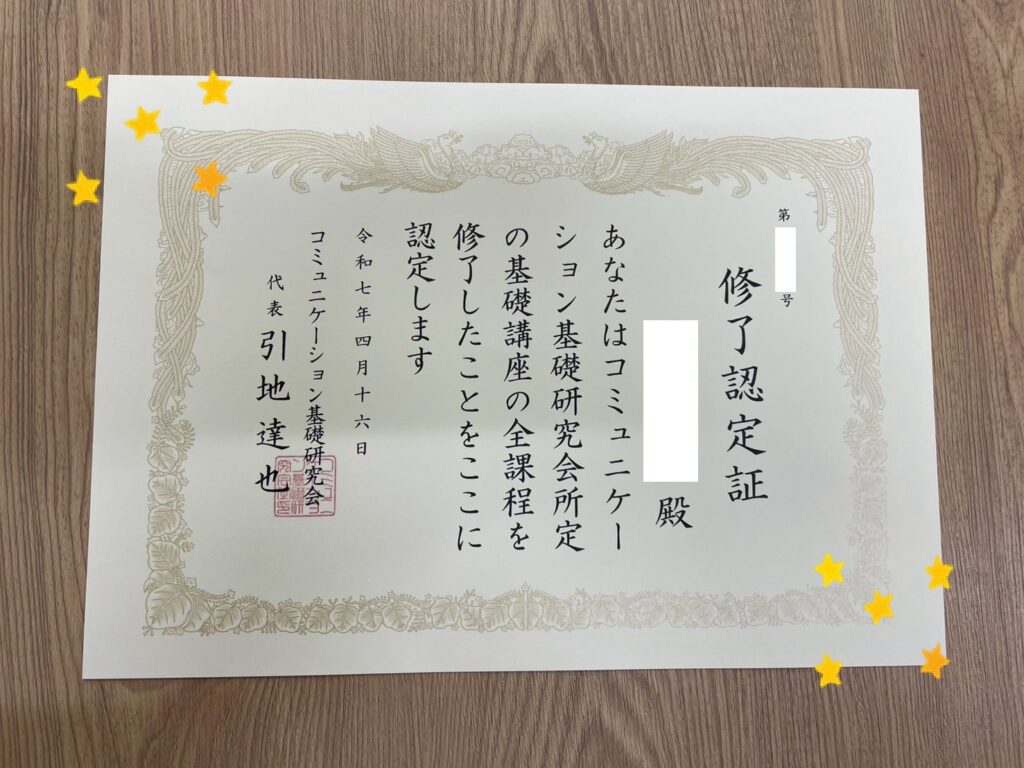 第 号
修了認定証
殿
あなたはコミュニケー
ション基礎研究会所定
の基礎講座の全課程を
修了したことをここに
認定します
令和七年四月十六日
コミュニケーション基礎研究会
代表 引地達也